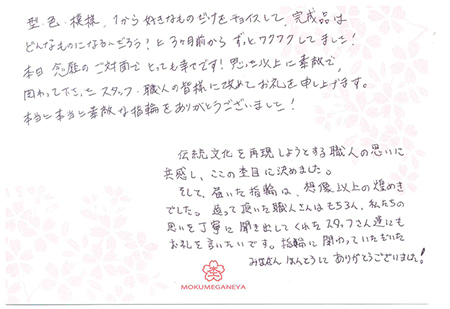 型・色・模様、1から好きなものだけをチョイスして、完成品は
どんなものになるんだろう！と3ヶ月前からずっとワクワクしてました！
本日念願のご対面でとっても幸せです！思った以上に素敵で、
関わって下さったスタッフ・職人の皆様に改めてお礼を申し上げます。
本当に本当に素敵な指輪をありがとうございました！
伝統文化を再現しようとする職人の思いに
共感し、ここの杢目に決めました。
そして、届いた指輪は、想像以上の煌めき
でした。造って頂いた職人さんはもちろん、私たちの
思いを丁寧に聞き出してくれたスタッフさん達にも
お礼を言いたいです。指輪に関わっていただいた
みなさん ほんとうに ありがとうございました！
MOKUMEGANEYA